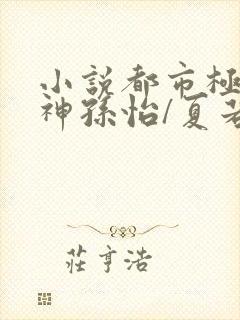 小説都市極
神孫怡/夏若
莊亨浩